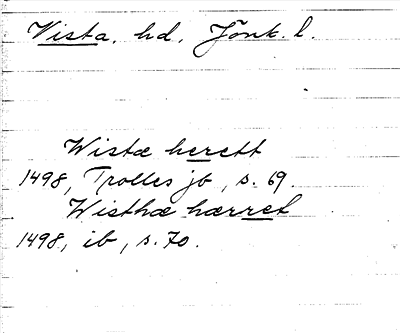 Vista. hd. Jönk. l.
Wistæ herett
1498, Trolles jb, s. 69.
Wisthæ hærret
1498, ib, s. 70.